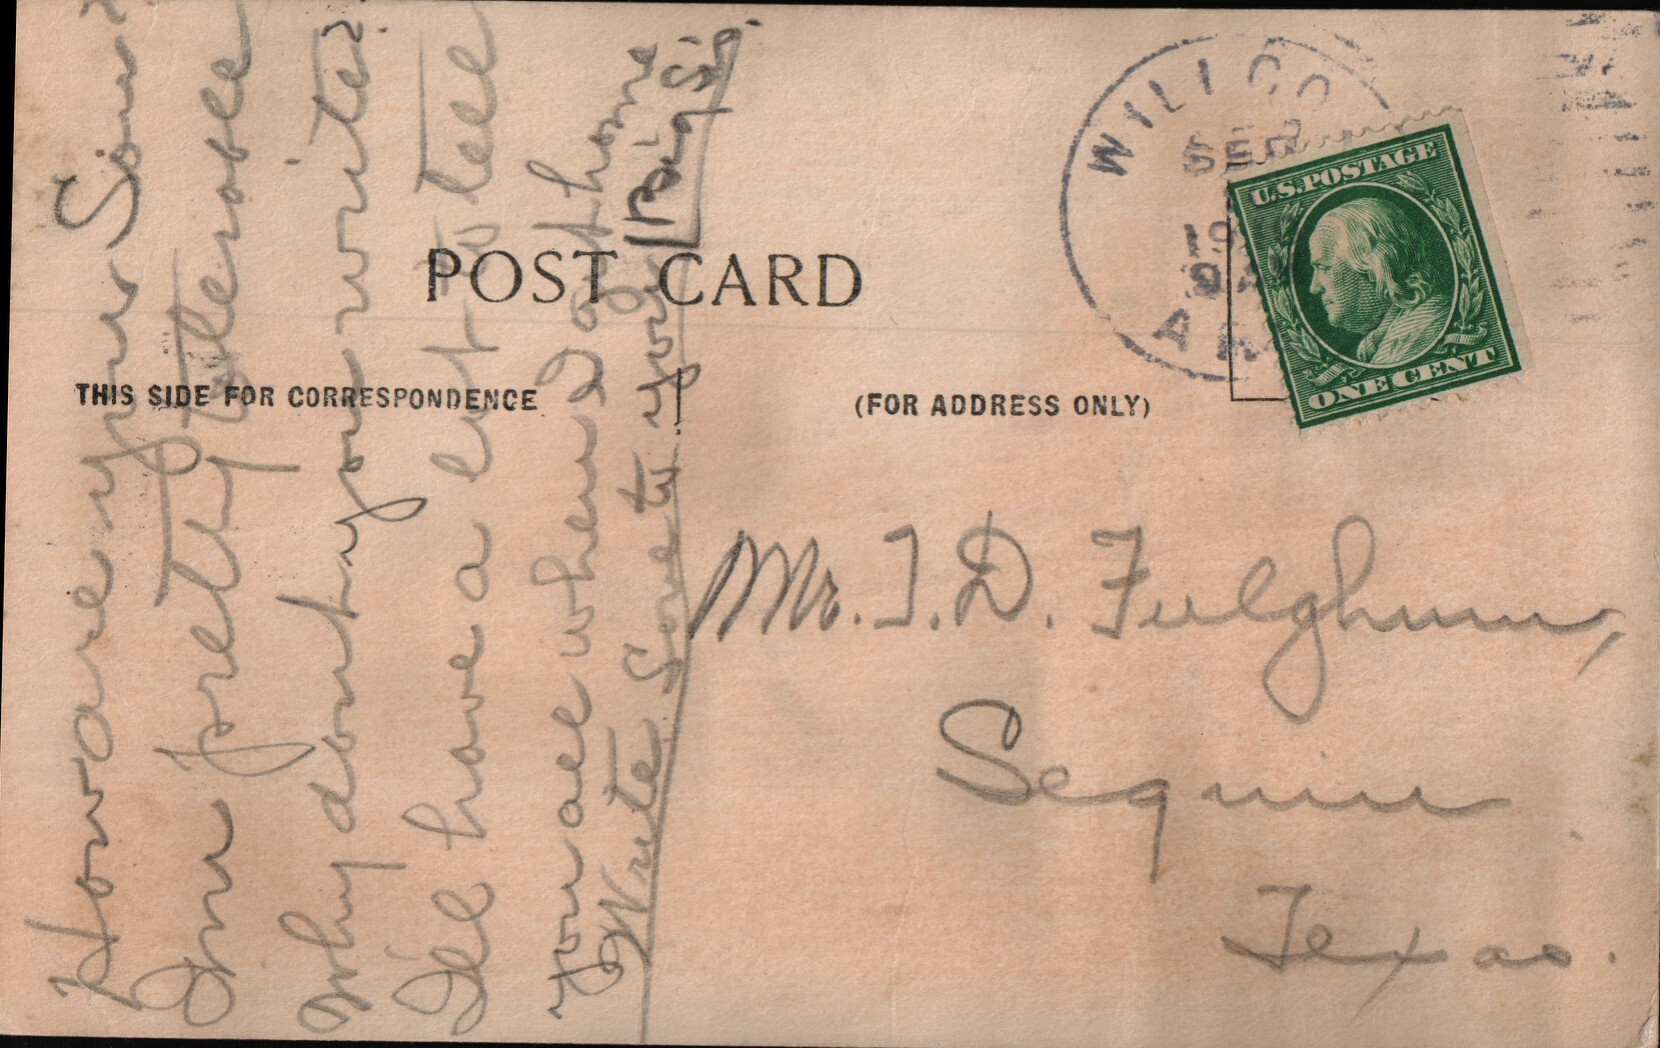 POST CARD
THIS SIDE FOR CORRESPONDENCE
(FOR ADDRESS ONLY)
WILLCO
SEP
ARI
U.S. POSTAGE
ONE CENT
How are you Sour?
Im pretty
Why dont you write?
Ill have a lot to tell
you all when I get home
Write Soon to your Big Sis.
Mr. J. D. Fulghum,
Sequin
Texas.